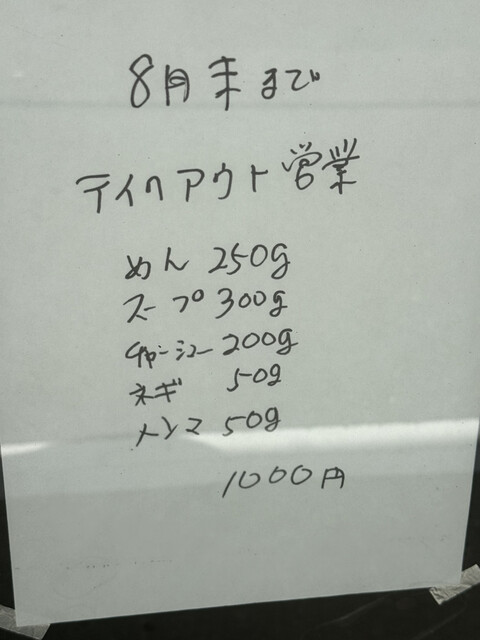 8月末まで
テイクアウト営業
めん 250g
スープ 300g
チャーシュー 200g
ネギ 50g
メンマ 50g
1000円